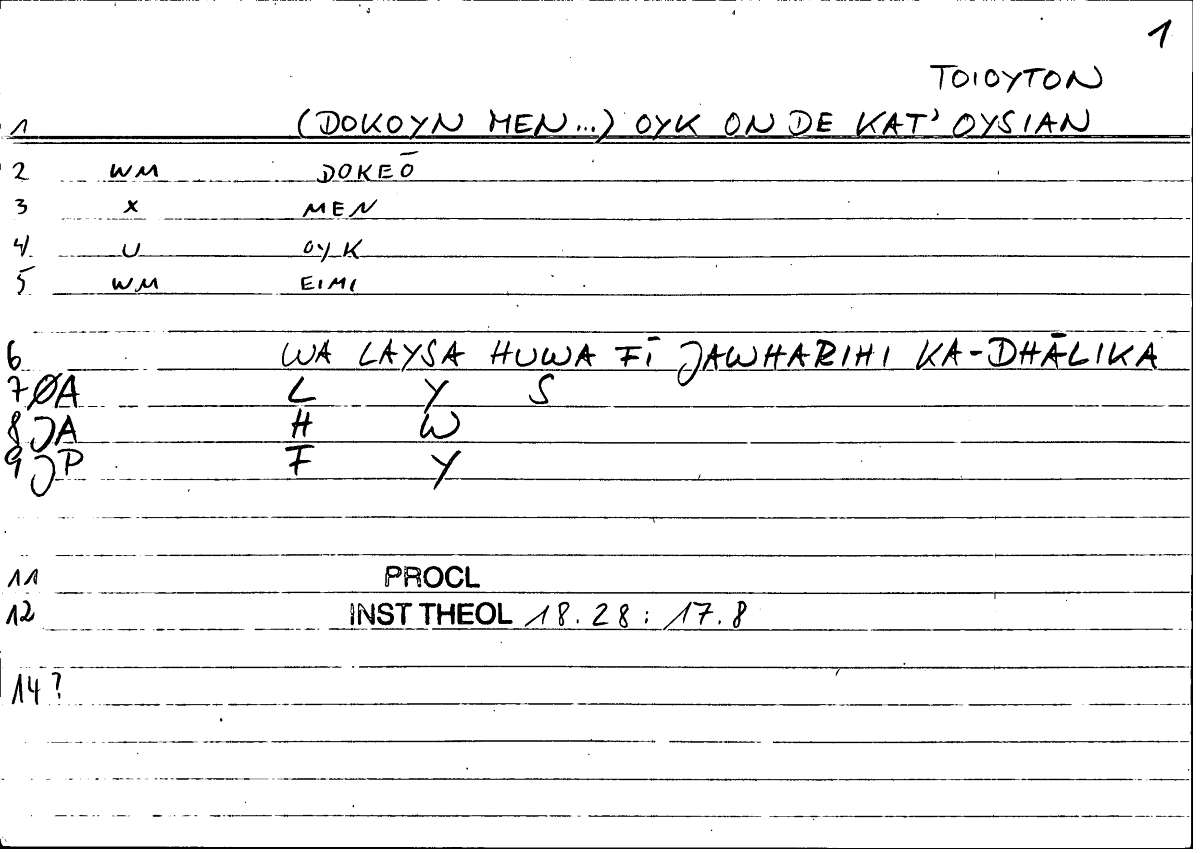 1
TOIOYTON
1 (DOKOYN MEN...) OYK ON DE KAT' OYSIAN
2 WM DOKEŌ
3 X MEN
4 U OYK
5 WM EIMI
6 WA LAYSA HUWA FĪ JAWHARIHI KA-DHĀLIKA
7 ØA L Y S
8 JA H W
9 JP F Y
11 PROCL
12 INST THEOL 18.28 : 17.8
14?